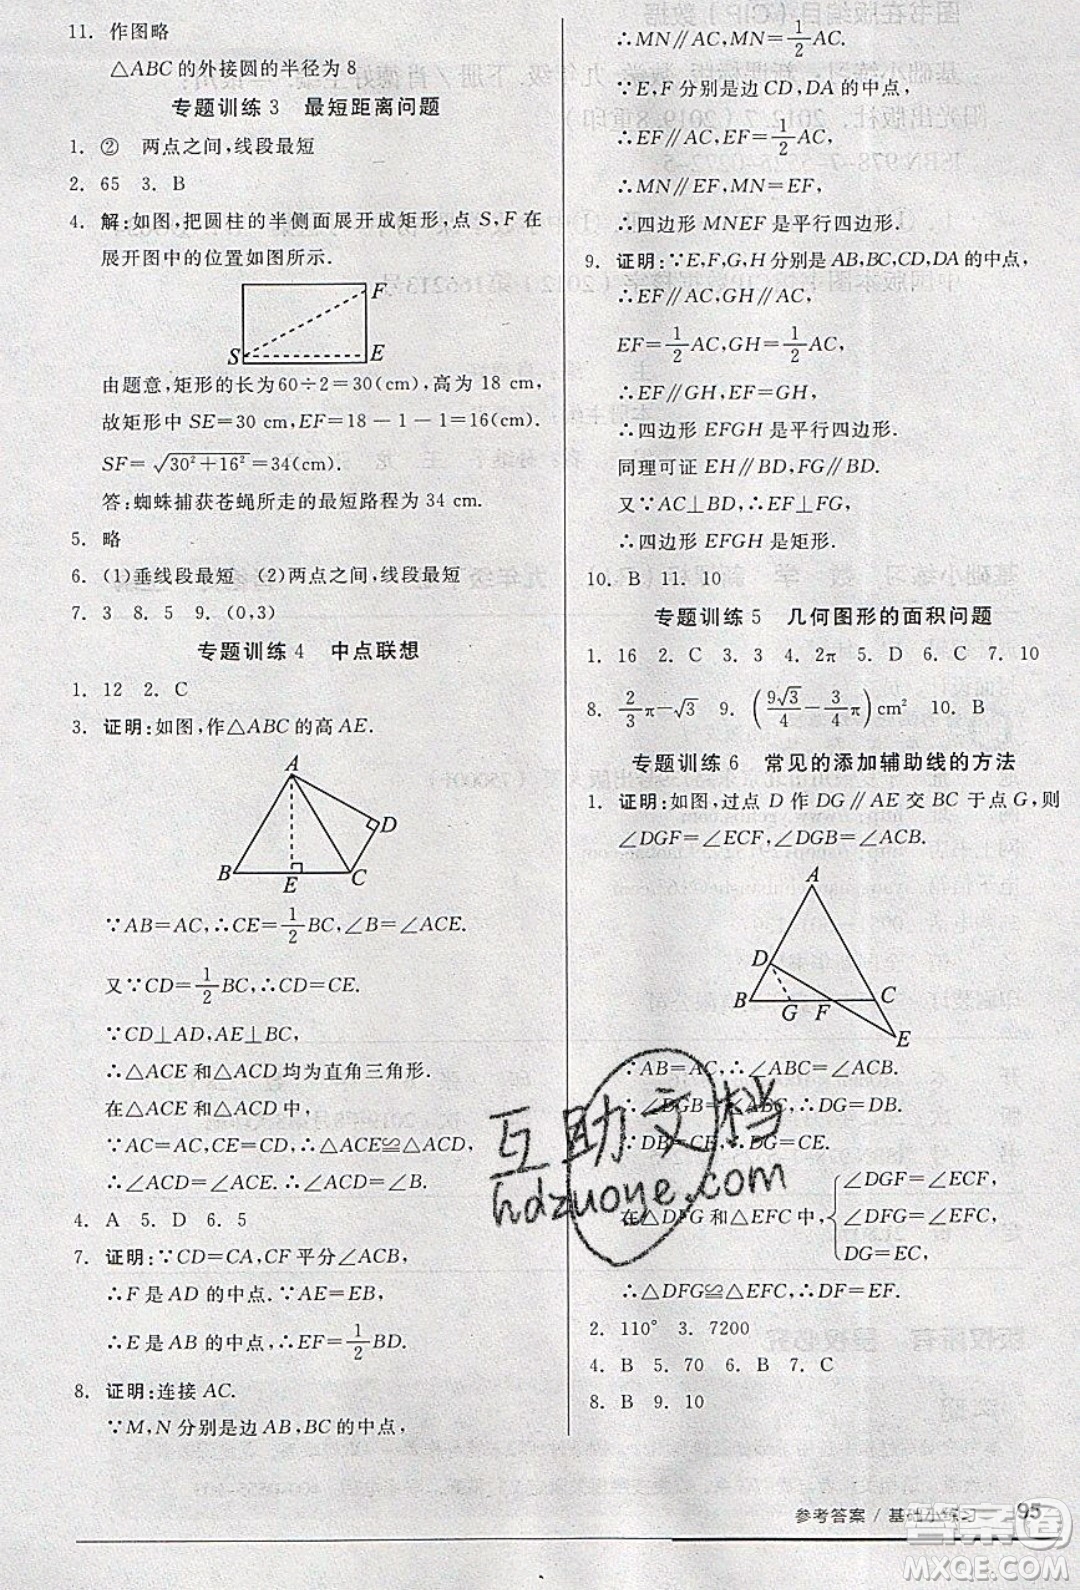 11. 作图略
△ABC的外接圆的半径为8
专题训练3 最短距离问题
1. ② 两点之间,线段最短
2. 65 3. B
4. 解:如图,把圆柱的半侧面展开成矩形,点S,F在
展开图中的位置如图所示.
F
S
E
由题意,矩形的长为60÷2=30(cm),高为18 cm,
故矩形中SE=30 cm,EF=18-1-1=16(cm).
SF=√(30²+16²)=34(cm)
答:蜘蛛捕获苍蝇所走的最短路程为34 cm.
5. 略
6. (1)垂线段最短 (2)两点之间,线段最短
7. 3 8. 5 9. (3,0)
专题训练4 中点联想
1. 12 2. C
3. 证明:如图,作△ABC的高AE.
A
D
B
E
C
∵AB=AC,∴CE=1/2BC,∠B=∠ACE.
又∵CD=1/2BC,∴CD=CE.
∵CD⊥AD,AE⊥BC,
∴△ACE和△ACD均为直角三角形.
在△ACE和△ACD中,
∵AC=AC,CE=CD,∴△ACE≌△ACD,
∴∠ACE=∠ACD,∴∠ACD=∠B.
4. A 5. D 6. 5
7. 证明:∵CD=CA,CF平分∠ACB,
∴F是AD的中点.∵AE=EB,
∴E是AB的中点,∴EF=1/2BD.
8. 证明:连接AC.
∵M,N分别是边AB,BC的中点,
∴MN∥AC,MN=1/2AC.
∵E,F分别是边CD,DA的中点,
∴EF∥AC,EF=1/2AC,
∴MN∥EF,MN=EF,
∴四边形MNEF是平行四边形.
9. 证明:∵E,F,G,H分别是AB,BC,CD,DA的中点,
∴EF∥AC,GH∥AC,
EF=1/2AC,GH=1/2AC,
∴EF∥GH,EF=GH,
∴四边形EFGH是平行四边形.
同理可证EH∥BD,FG∥BD,
又∵AC⊥BD,∴EF⊥FG,
∴四边形EFGH是矩形.
10. B 11. 10
专题训练5 几何图形的面积问题
1. 16 2. C 3. 3 4. 2π 5. D 6. C 7. 10
8. 2/3π-√3 9. (9√3/4-3/4π)cm² 10. B
专题训练6 常见的添加辅助线的方法
1. 证明:如图,过点D作DG∥AE交BC于点G,则
∠DGF=∠ECF,∠DGB=∠ACB.
A
D
B
G
F
C
E
∵AB=AC,∴∠ABC=∠ACB.
∴∠DGB=∠ABC,∴DG=DB.
∵DB=CE,∴DG=CE.
在△DFG和△EFC中,{∠DGF=∠ECF,
∠DFG=∠EFC,
DG=EC,
∴△DFG≌△EFC,∴DF=EF.
2. 110° 3. 7200
4. B 5. 70 6. B 7. C
8. B 9. 10
互助文档
hdzuoye.com
参考答案 / 基础小练习 95
答案圈
MXQE.COM